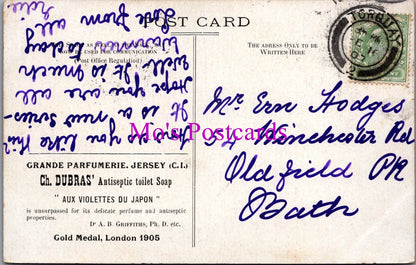 POST CARD
TORQUAY
NOW BE USED FOR COMMUNICATION
(Post Office Regulation)
THE ADDRESS ONLY TO BE
WRITTEN HERE
How do you like this
It is a new series
Hope you are all
well. It is much
warmer today
Love from all
Mr Ern Hodges
54 Winchester Rd
Oldfield PK
Bath
Mo's Postcards
GRANDE PARFUMERIE. JERSEY (C.I.)
Ch. DUBRAS' Antiseptic toilet Soap
"AUX VIOLETTES DU JAPON"
is unsurpassed for its delicate perfume and antiseptic
properties.
Dr A. B. GRIFFITHS, Ph. D. etc.
Gold Medal, London 1905